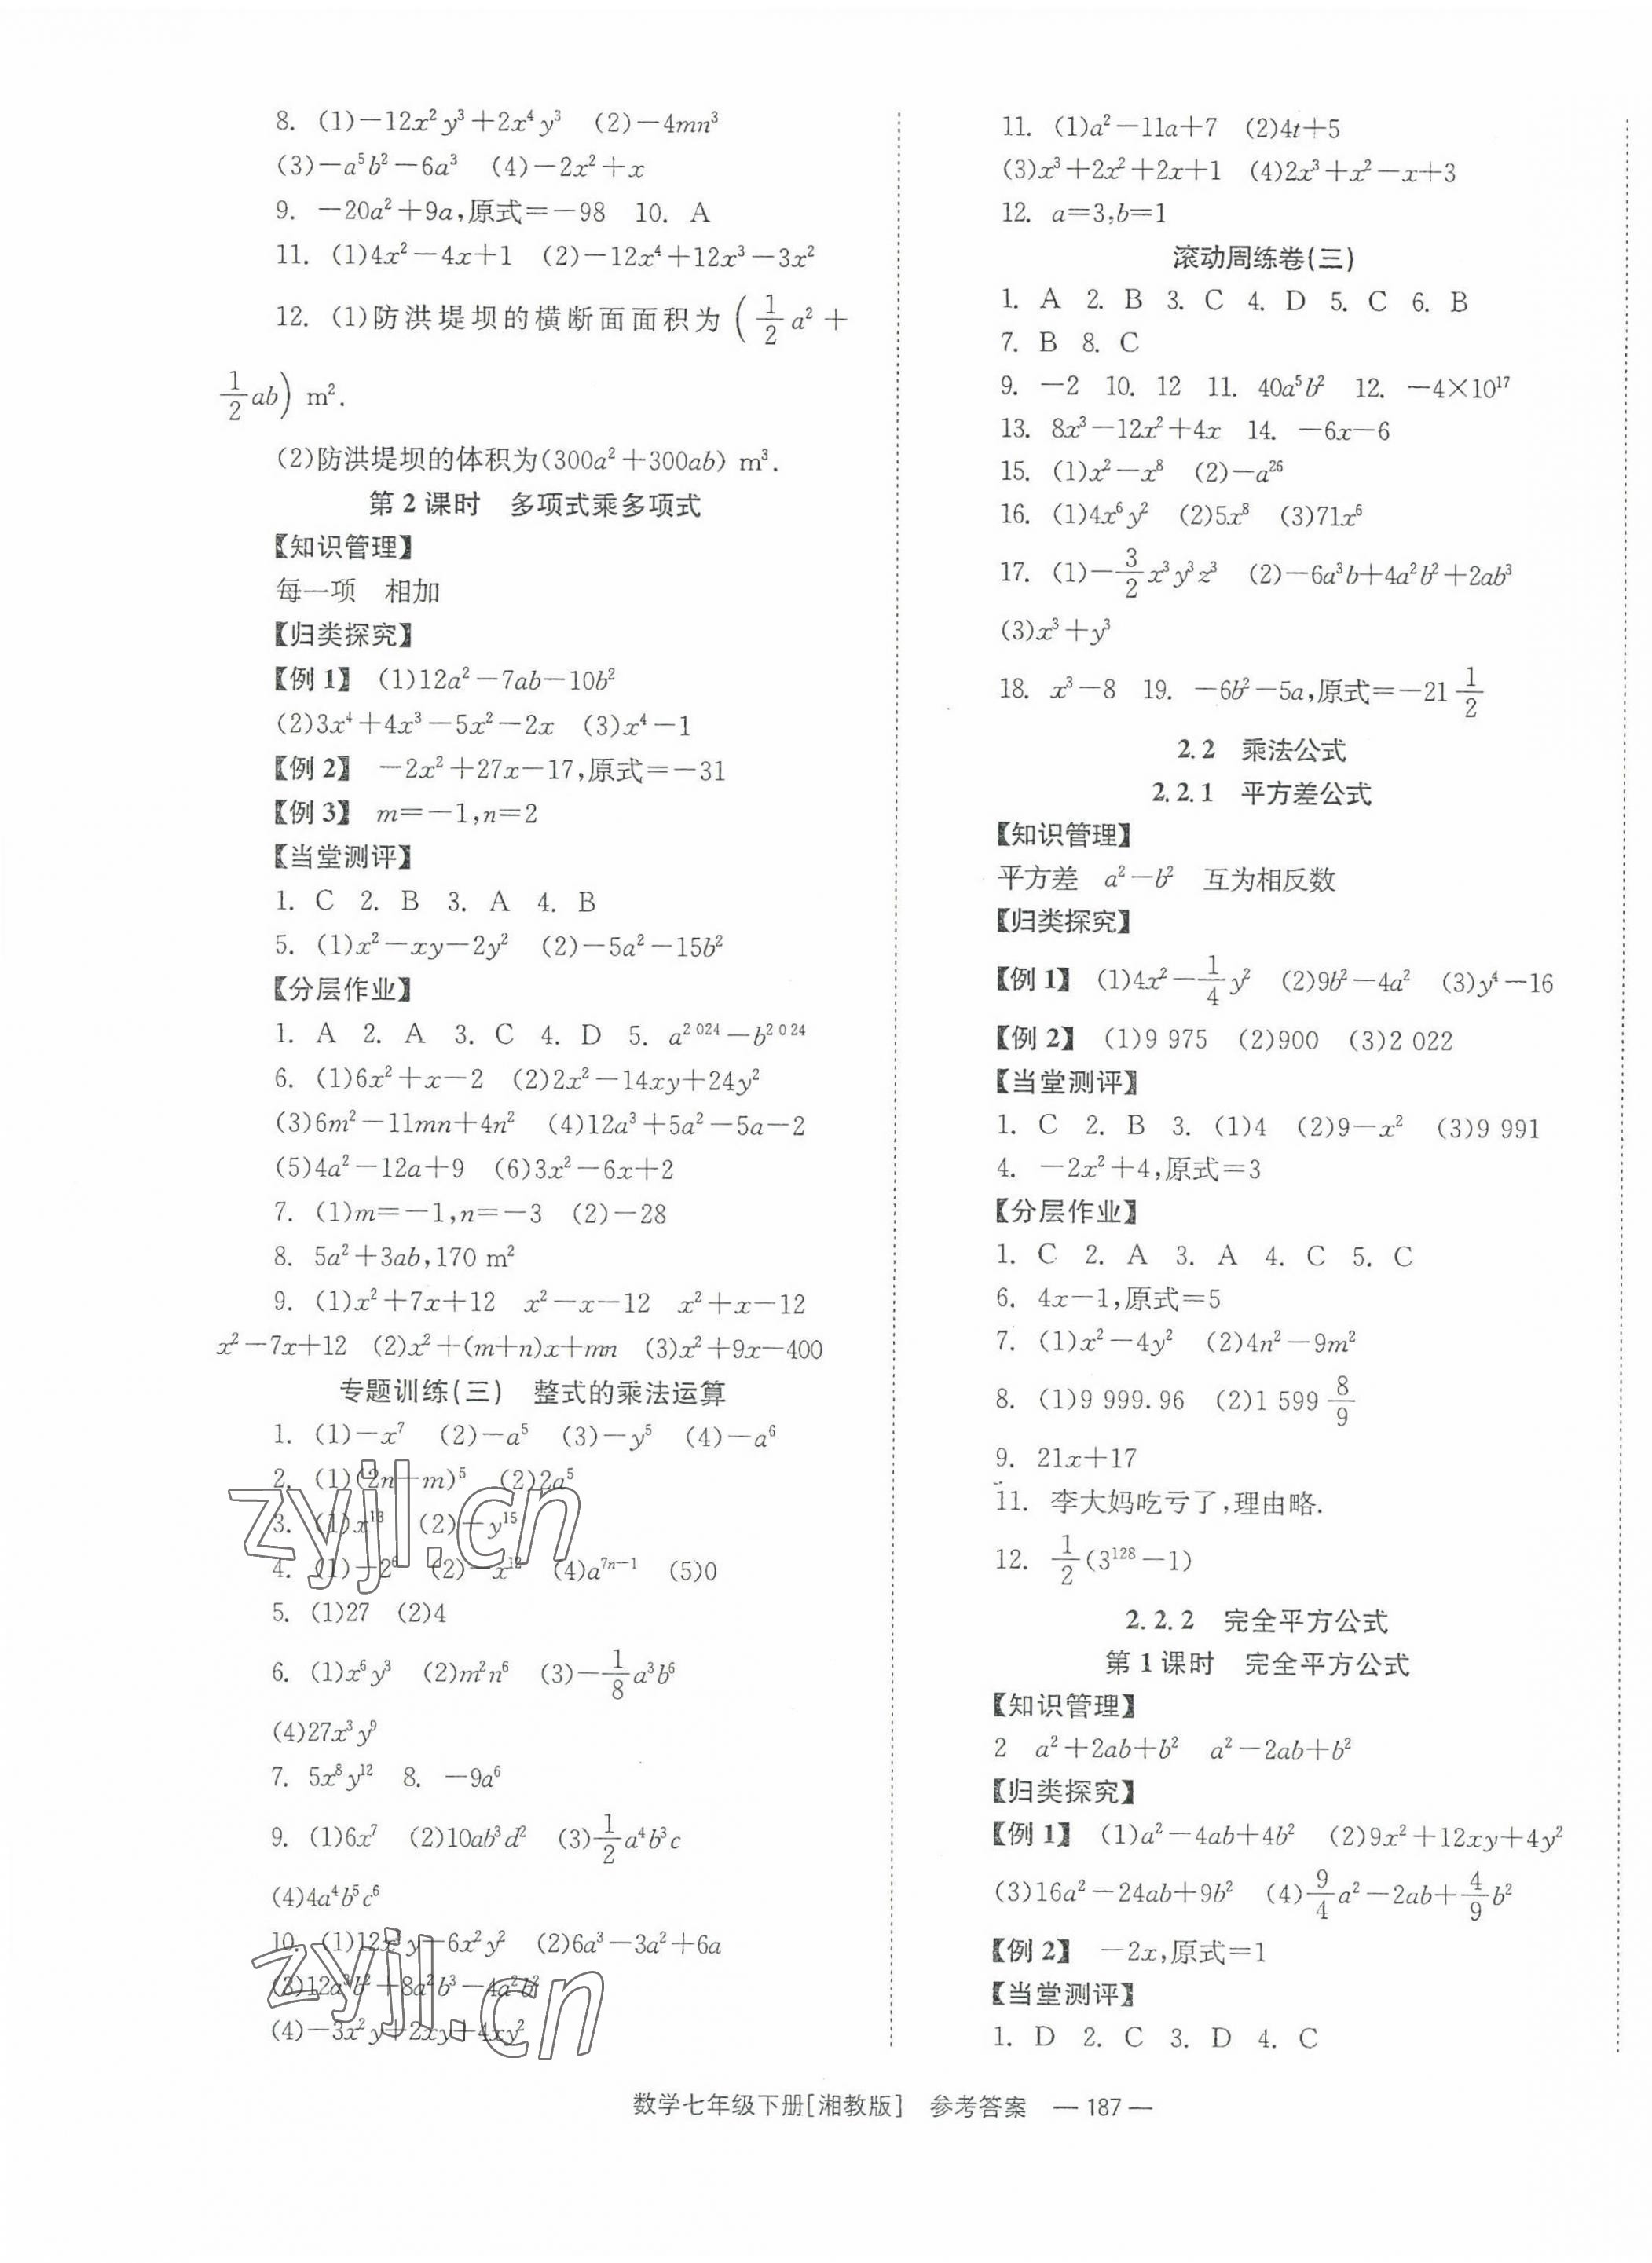 8. (1)−12x²y³+2x⁴y³ (2)−4mn³
(3)−a⁵b²−6a³ (4)−2x²+x
9. −20a²+9a,原式=−98 10. A
11. (1)4x²−4x+1 (2)−12x⁴+12x³−3x²
12. (1)防洪堤坝的横断面面积为(1/2 a²+
1/2 ab) m².
(2)防洪堤坝的体积为(300a²+300ab) m³.
第2课时 多项式乘多项式
【知识管理】
每一项 相加
【归类探究】
【例1】 (1)12a²−7ab−10b²
(2)3x⁴+4x³−5x²−2x (3)x⁴−1
【例2】 −2x²+27x−17,原式=−31
【例3】 m=−1,n=2
【当堂测评】
1. C 2. B 3. A 4. B
5. (1)x²−xy−2y² (2)−5a²−15b²
【分层作业】
1. A 2. A 3. C 4. D 5. a²⁰²⁴−b²⁰²⁴
6. (1)6x²+x−2 (2)2x²−14xy+24y²
(3)6m²−11mn+4n² (4)12a³+5a²−5a−2
(5)4a²−12a+9 (6)3x²−6x+2
7. (1)m=−1,n=−3 (2)−28
8. 5a²+3ab,170 m²
9. (1)x²+7x+12 x²−x−12 x²+x−12
x²−7x+12 (2)x²+(m+n)x+mn (3)x²+9x−400
专题训练(三) 整式的乘法运算
1. (1)−x⁷ (2)−a⁵ (3)−y⁵ (4)−a⁶
2. (1)(2n+m)⁵ (2)2a⁵
3. (1)x¹³ (2)−y¹⁵
4. (1)−2⁶ (2)−x¹² (4)a⁷ⁿ⁻¹ (5)0
5. (1)27 (2)4
6. (1)x⁶y³ (2)m²n⁶ (3)−1/8 a³b⁶
(4)27x³y⁹
7. 5x⁸y¹² 8. −9a⁶
9. (1)6x⁷ (2)10ab³d² (3)1/2 a⁴b³c
(4)4a⁴b⁵c⁶
10. (1)12x³y−6x²y² (2)6a³−3a²+6a
(3)12a³b²+8a²b³−4a²b²
(4)−3x²y+2xy+4xy²
11. (1)a²−11a+7 (2)4t+5
(3)x³+2x²+2x+1 (4)2x³+x²−x+3
12. a=3,b=1
滚动周练卷(三)
1. A 2. B 3. C 4. D 5. C 6. B
7. B 8. C
9. −2 10. 12 11. 40a⁵b² 12. −4×10¹⁷
13. 8x³−12x²+4x 14. −6x−6
15. (1)x²−x⁸ (2)−a²⁶
16. (1)4x⁶y² (2)5x⁸ (3)71x⁶
17. (1)−3/2 x³y³z³ (2)−6a³b+4a²b²+2ab³
(3)x³+y³
18. x³−8 19. −6b²−5a,原式=−21 1/2
2.2 乘法公式
2.2.1 平方差公式
【知识管理】
平方差 a²−b² 互为相反数
【归类探究】
【例1】 (1)4x²−1/4 y² (2)9b²−4a² (3)y⁴−16
【例2】 (1)9 975 (2)900 (3)2 022
【当堂测评】
1. C 2. B 3. (1)4 (2)9−x² (3)9 991
4. −2x²+4,原式=3
【分层作业】
1. C 2. A 3. A 4. C 5. C
6. 4x−1,原式=5
7. (1)x²−4y² (2)4n²−9m²
8. (1)9 999.96 (2)1 599 8/9
9. 21x+17
11. 李大妈吃亏了,理由略.
12. 1/2(3¹²⁸−1)
2.2.2 完全平方公式
第1课时 完全平方公式
【知识管理】
2 a²+2ab+b² a²−2ab+b²
【归类探究】
【例1】 (1)a²−4ab+4b² (2)9x²+12xy+4y²
(3)16a²−24ab+9b² (4)9/4 a²−2ab+4/9 b²
【例2】 −2x,原式=1
【当堂测评】
1. D 2. C 3. D 4. C
数学七年级下册[湘教版] 参考答案 — 187 —
zyjl.cn
zyjl.cn